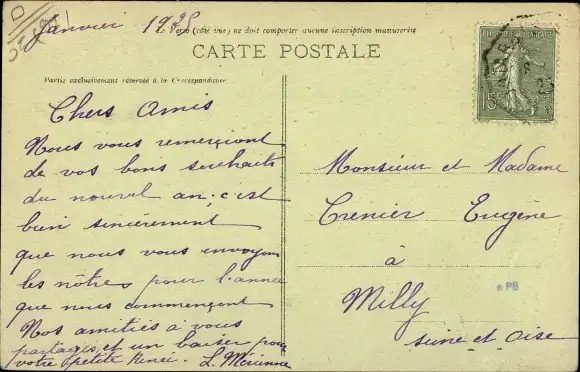 Janvier 1925
Le Verso (côté vue) ne doit comporter aucune inscription manuscrite
CARTE POSTALE
Partie exclusivement réservée à la Correspondance
REPUBLIQUE FRANÇAISE
15c
Chers Amis
Nous vous remerçiont
de vos bons souhaits
du nouvel an, c'est
bien sincèrement
que nous vous envoyons
les nôtres pour l'année
que nous commençont
Nos amitiés à vous
partages, et un baiser pour
votre petite Renée. L. Méricenne
Monsieur et Madame
Crenier Eugène
à
Milly
seine et oise
*PB